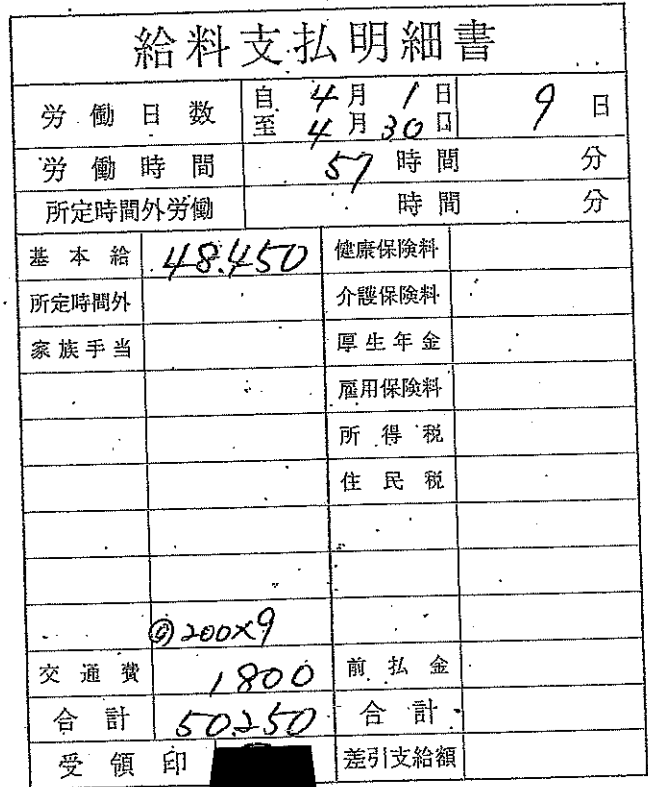 給料支払明細書
労働日数 自 4月 1日 至 4月 30日 9日
労働時間 57時間 分
所定時間外労働 時間 分
基本給 48.450 健康保険料
所定時間外 介護保険料
家族手当 厚生年金
雇用保険料
所得税
住民税
@200×9
交通費 1800 前払金
合計 50.250 合計
受領印 差引支給額